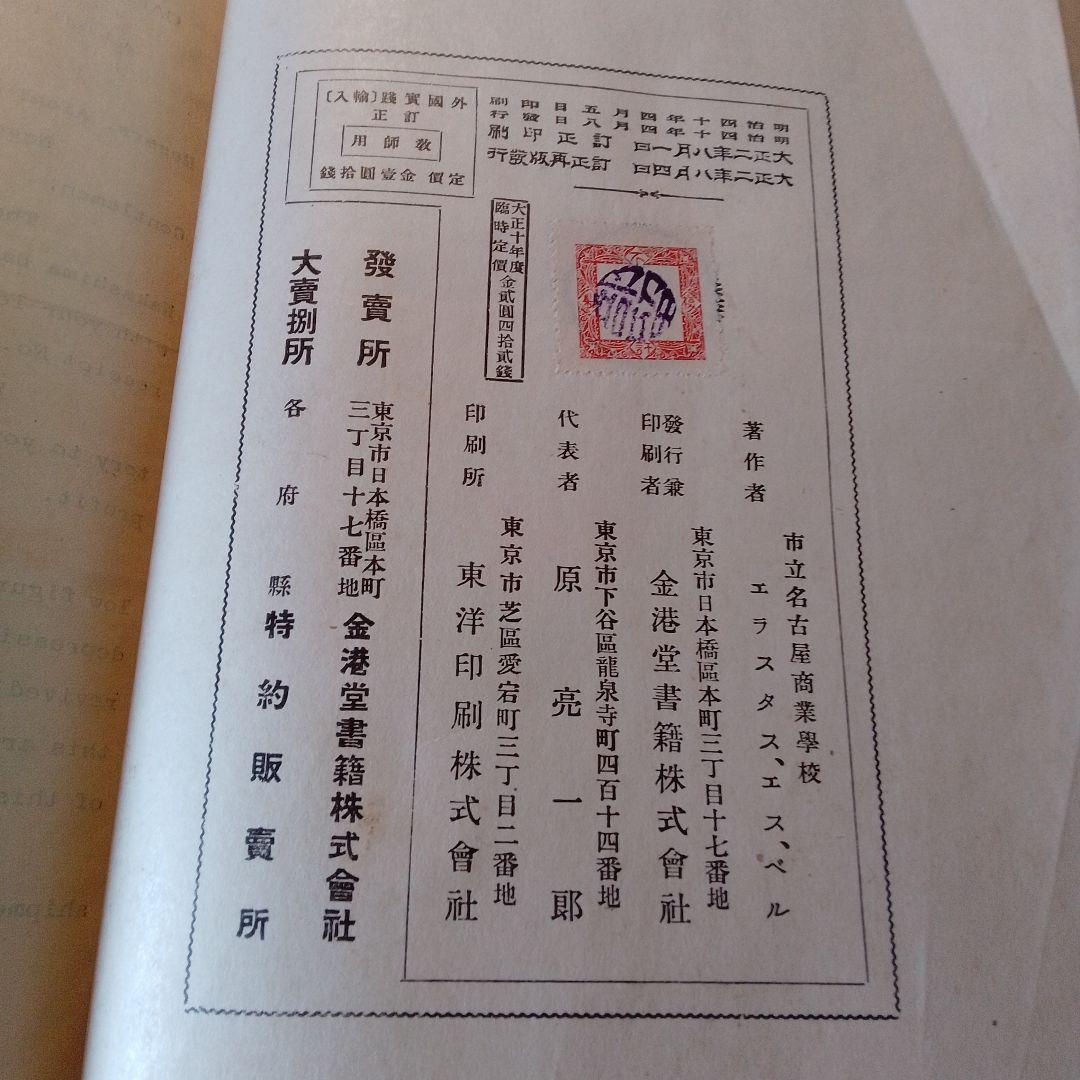 明治四十四年四月五日印刷
明治四十四年四月八日發行
大正二年八月一日訂正印刷
大正二年八月四日訂正再版發行
外國實踐〔輸入〕
訂正
教師用
定價金壹圓拾錢
大正十年度
臨時定價金貳圓四拾貳錢
著作者
市立名古屋商業學校
エラスタス、エス、ベル
發行兼
印刷者
東京市日本橋區本町三丁目十七番地
金港堂書籍株式會社
代表者
東京市下谷區龍泉寺町四百十四番地
原亮一郎
印刷所
東京市芝區愛宕町三丁目二番地
東洋印刷株式會社
發賣所
東京市日本橋區本町
三丁目十七番地
金港堂書籍株式會社
大賣捌所
各府縣特約販賣所